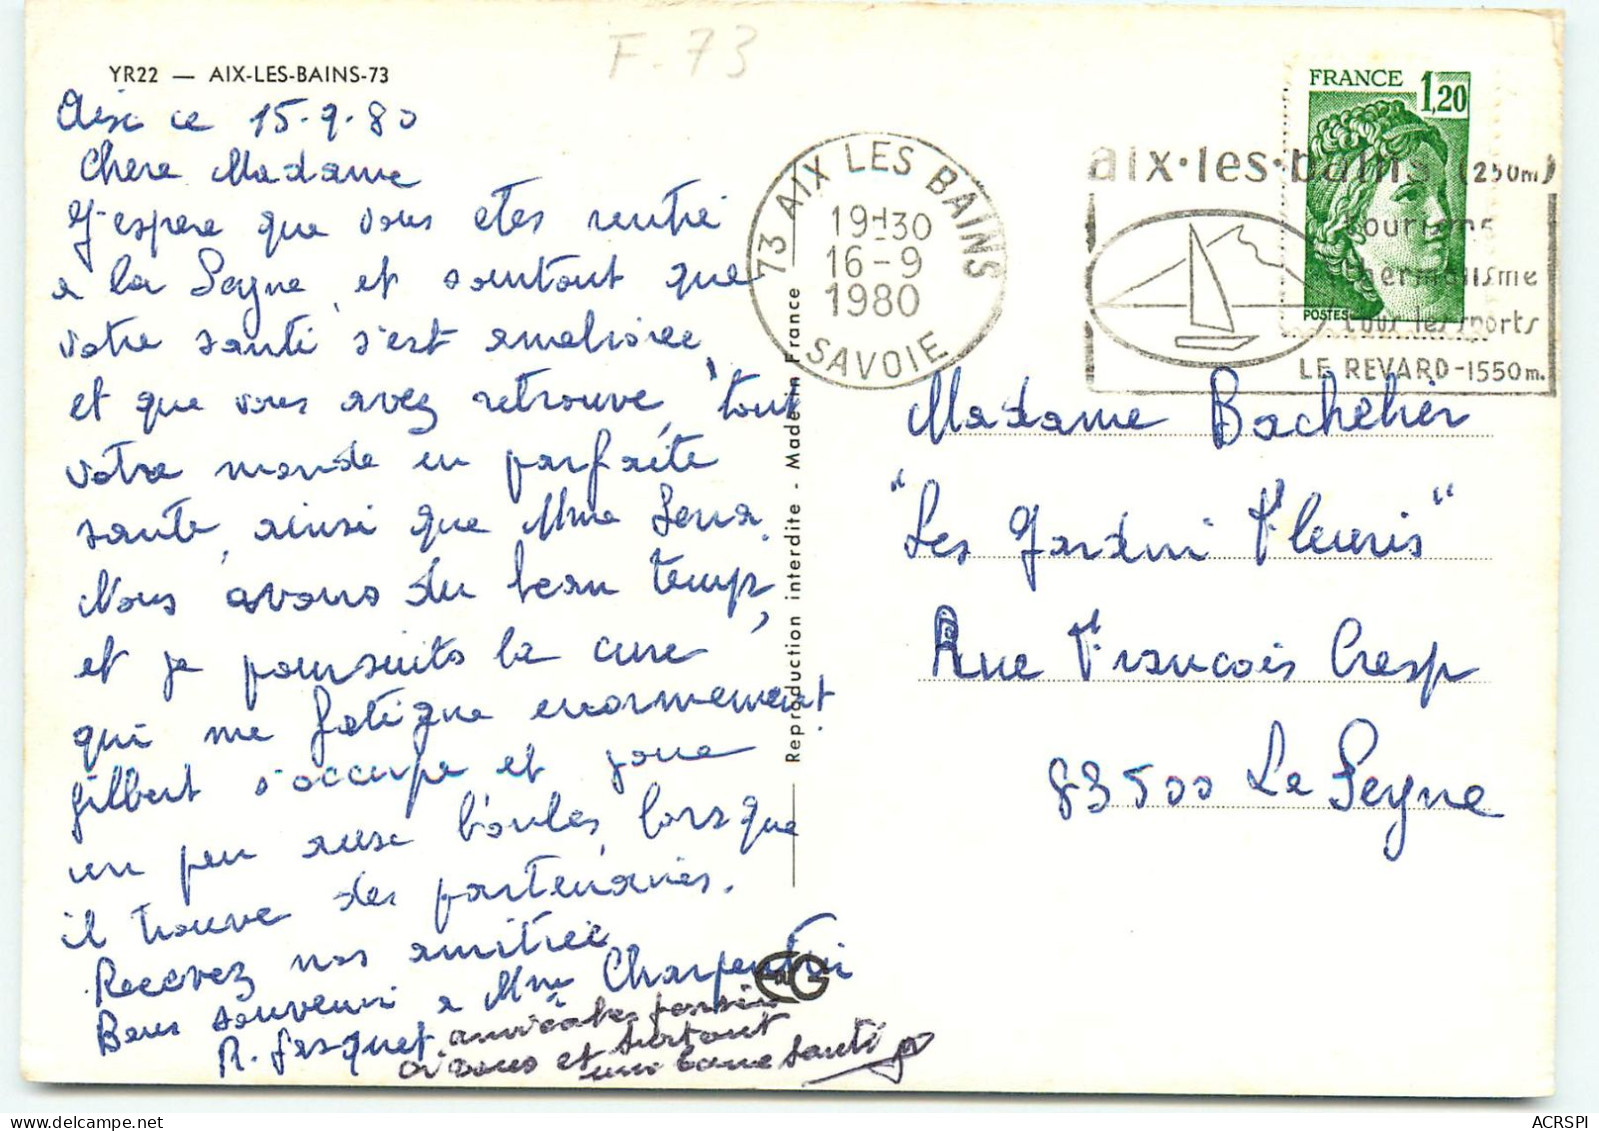 F-73
YR22 — AIX-LES-BAINS-73
Aix ce 15-9-80
Chere Madame
J'espere que vous etes rentré
a la Seyne, et surtout que
votre santé s'est ameliorée,
et que vous avez retrouvé, tout
votre monde en parfaite
santé, ainsi que Mme Serra.
Nous avons du beau temps,
et je poursuits la cure
qui me fatigue enormement
Gilbert s'occupe et joue
un peu aux boules, lorsque
il trouve des partenaires.
Recevez nos amitiée
Bons souvenir a Mme Charpentier
R. Jasquet
amicales pensée
a vous et surtout
une bonne santé
Reproduction interdite - Made in France
73 AIX LES BAINS
19H30
16-9
1980
SAVOIE
aix·les·bains (250m)
tourisme
thermalisme
tous les sports
LE REVARD-1550m.
FRANCE 1,20
POSTES
Madame Bachelier
"Les Jardin Fleuris"
Rue Francois Cresp
83500 La Seyne
ACRSPI